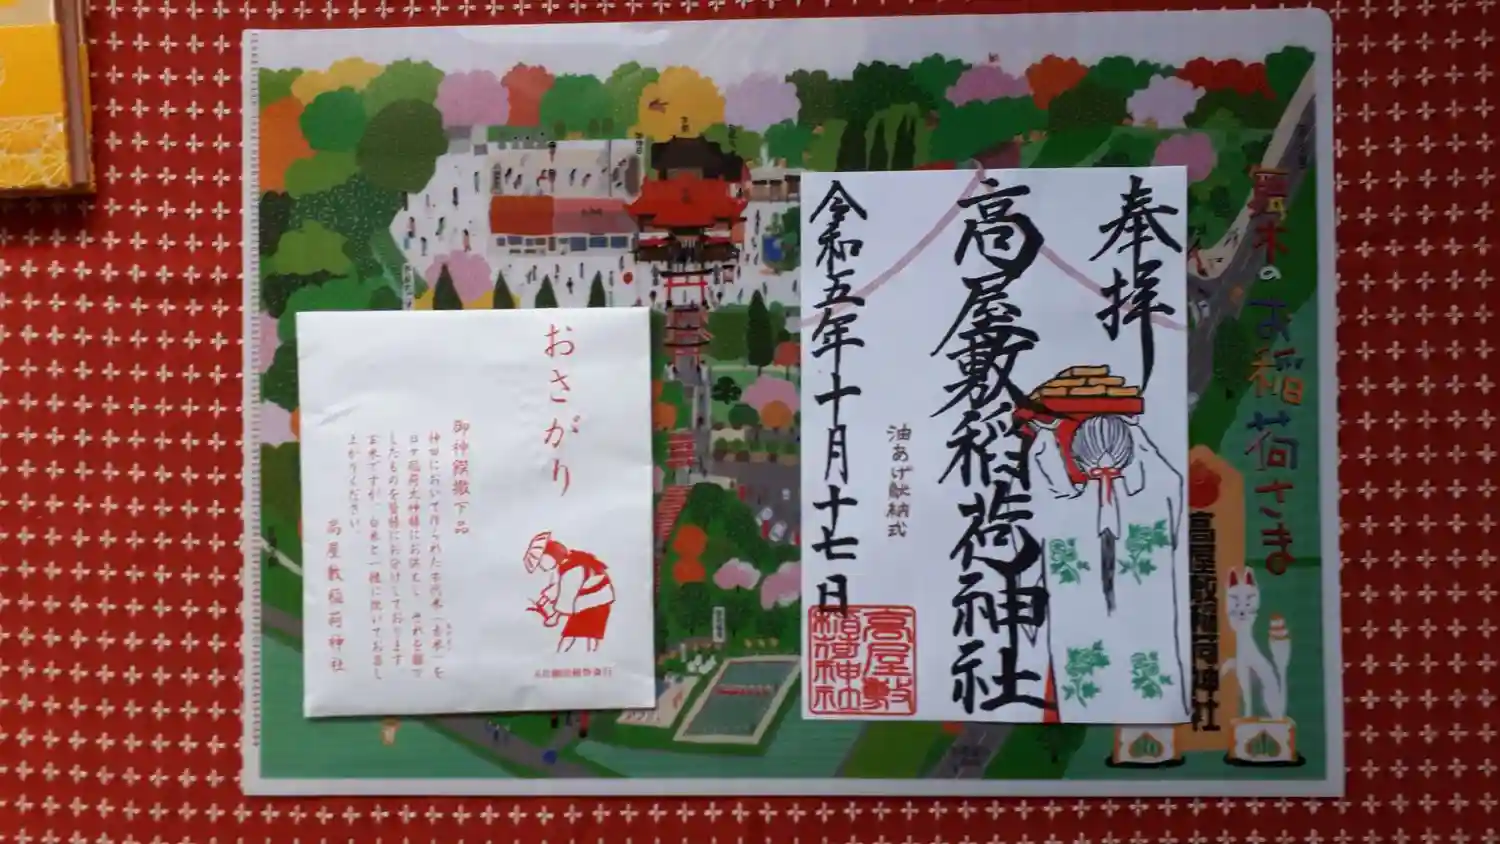 奉拝
高屋敷稲荷神社
油あげ献納式
令和五年十月十七日
高屋敷
稲荷神社
おさがり
御神饌撤下品
神田において作られた古代米（玄米）を
日々稲荷大神様にお供えし、それを撤下
したものを皆様にお分けしております
玄米ですが、白米と一緒に炊いてお召し
上がりください。
高屋敷稲荷神社
のお稲荷さま
高屋敷稲荷神社